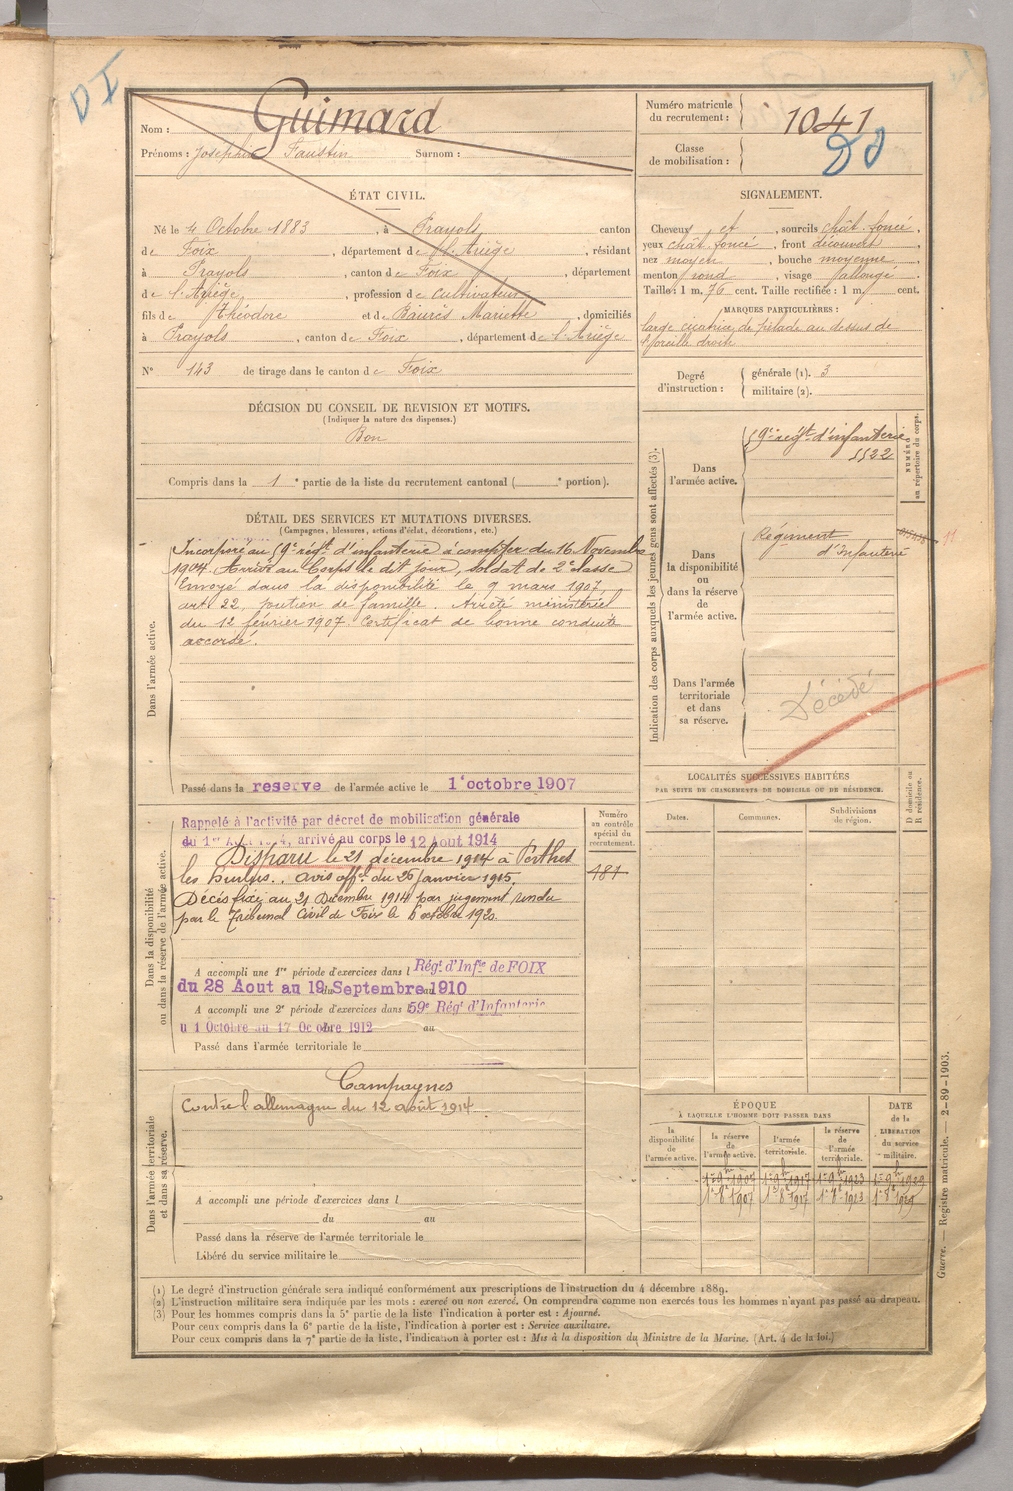 D I
Nom : Guimard
Prénoms : Joseph Faustin Surnom :
Numéro matricule
du recrutement : 1041
Classe
de mobilisation :
ÉTAT CIVIL.
Né le 4 Octobre 1883, à Prayols, canton
de Foix, département de l'Ariège, résidant
à Prayols, canton de Foix, département
de l'Ariège, profession de cultivateur
fils de Théodore et de Baurès Mariette, domiciliés
à Prayols, canton de Foix, département de l'Ariège
N° 143 de tirage dans le canton de Foix
SIGNALEMENT.
Cheveux et, sourcils chât. foncé,
yeux chât. foncé, front découvert
nez moyen, bouche moyenne,
menton rond, visage allongé.
Taille : 1 m. 76 cent. Taille rectifiée : 1 m. cent.
MARQUES PARTICULIÈRES :
large cicatrice de pelade au dessus de
l'oreille droite
Degré
d'instruction :
générale (1). 3
militaire (2).
DÉCISION DU CONSEIL DE REVISION ET MOTIFS.
(Indiquer la nature des dispenses.)
Bon
Compris dans la 1e partie de la liste du recrutement cantonal ( e portion).
DÉTAIL DES SERVICES ET MUTATIONS DIVERSES.
(Campagnes, blessures, actions d'éclat, décorations, etc.)
Dans l'armée active.
Incorporé au 59e régt d'infanterie à compter du 16 Novembre
1904. Arrivé au Corps le dit jour, soldat de 2e classe
Envoyé dans la disponibilité le 9 mars 1907,
art. 22, soutien de famille. Arrêté ministériel
du 12 février 1907. Certificat de bonne conduite
accordé.
Passé dans la reserve de l'armée active le 1er octobre 1907
Indication des corps auxquels les jeunes gens sont affectés (3).
NUMÉRO
au répertoire du corps.
Dans
l'armée active.
59e régt d'infanterie
5522
Dans
la disponibilité
ou
dans la réserve
de
l'armée active.
Régiment
d'Infanterie
11
Dans l'armée
territoriale
et dans
sa réserve.
Décédé
Dans la disponibilité
ou dans la réserve de l'armée active.
Numéro
au contrôle
spécial du
recrutement.
481
Rappelé à l'activité par décret de mobilisation générale
du 1er Août 1914, arrivé au corps le 12 Aout 1914
Disparu le 21 décembre 1914 à Perthes
les hurlus. avis offel du 26 Janvier 1915.
Décès fixé au 21 Décembre 1914 par jugement rendu
par le Tribunal Civil de Foix le 6 octobre 1920.
A accompli une 1re période d'exercices dans l Régt d'Infie de FOIX
du 28 Aout au 19 Septembre 1910
A accompli une 2e période d'exercices dans l 59e Régt d'Infanterie
u 1 Octobre au 17 Octobre 1912 au
Passé dans l'armée territoriale le
LOCALITÉS SUCCESSIVES HABITÉES
PAR SUITE DE CHANGEMENTS DE DOMICILE OU DE RÉSIDENCE.
Dates. Communes. Subdivisions
de région.
D domicile ou
R résidence.
Dans l'armée territoriale
et dans sa réserve.
Campagnes
Contre l'allemagne du 12 août 1914
A accompli une période d'exercices dans l
du au
Passé dans la réserve de l'armée territoriale le
Libéré du service militaire le
ÉPOQUE
À LAQUELLE L'HOMME DOIT PASSER DANS
DATE
de la
LIBÉRATION
du service
militaire.
la
disponibilité
de
l'armée active.
la réserve
de
l'armée active.
l'armée
territoriale.
la réserve
de
l'armée
territoriale.
1er 9bre 1907 1er 9bre 1917 1er 9bre 1923 1er 9bre 1929
1er 8bre 1907 1er 8bre 1917 1er 8bre 1923 1er 8bre 1929
Guerre. — Registre matricule. — 2-89-1903.
(1) Le degré d'instruction générale sera indiqué conformément aux prescriptions de l'instruction du 4 décembre 1889.
(2) L'instruction militaire sera indiquée par les mots : exercé ou non exercé. On comprendra comme non exercés tous les hommes n'ayant pas passé au drapeau.
(3) Pour les hommes compris dans la 5e partie de la liste l'indication à porter est : Ajourné.
Pour ceux compris dans la 6e partie de la liste, l'indication à porter est : Service auxiliaire.
Pour ceux compris dans la 7e partie de la liste, l'indication à porter est : Mis à la disposition du Ministre de la Marine. (Art. 4 de la loi.)